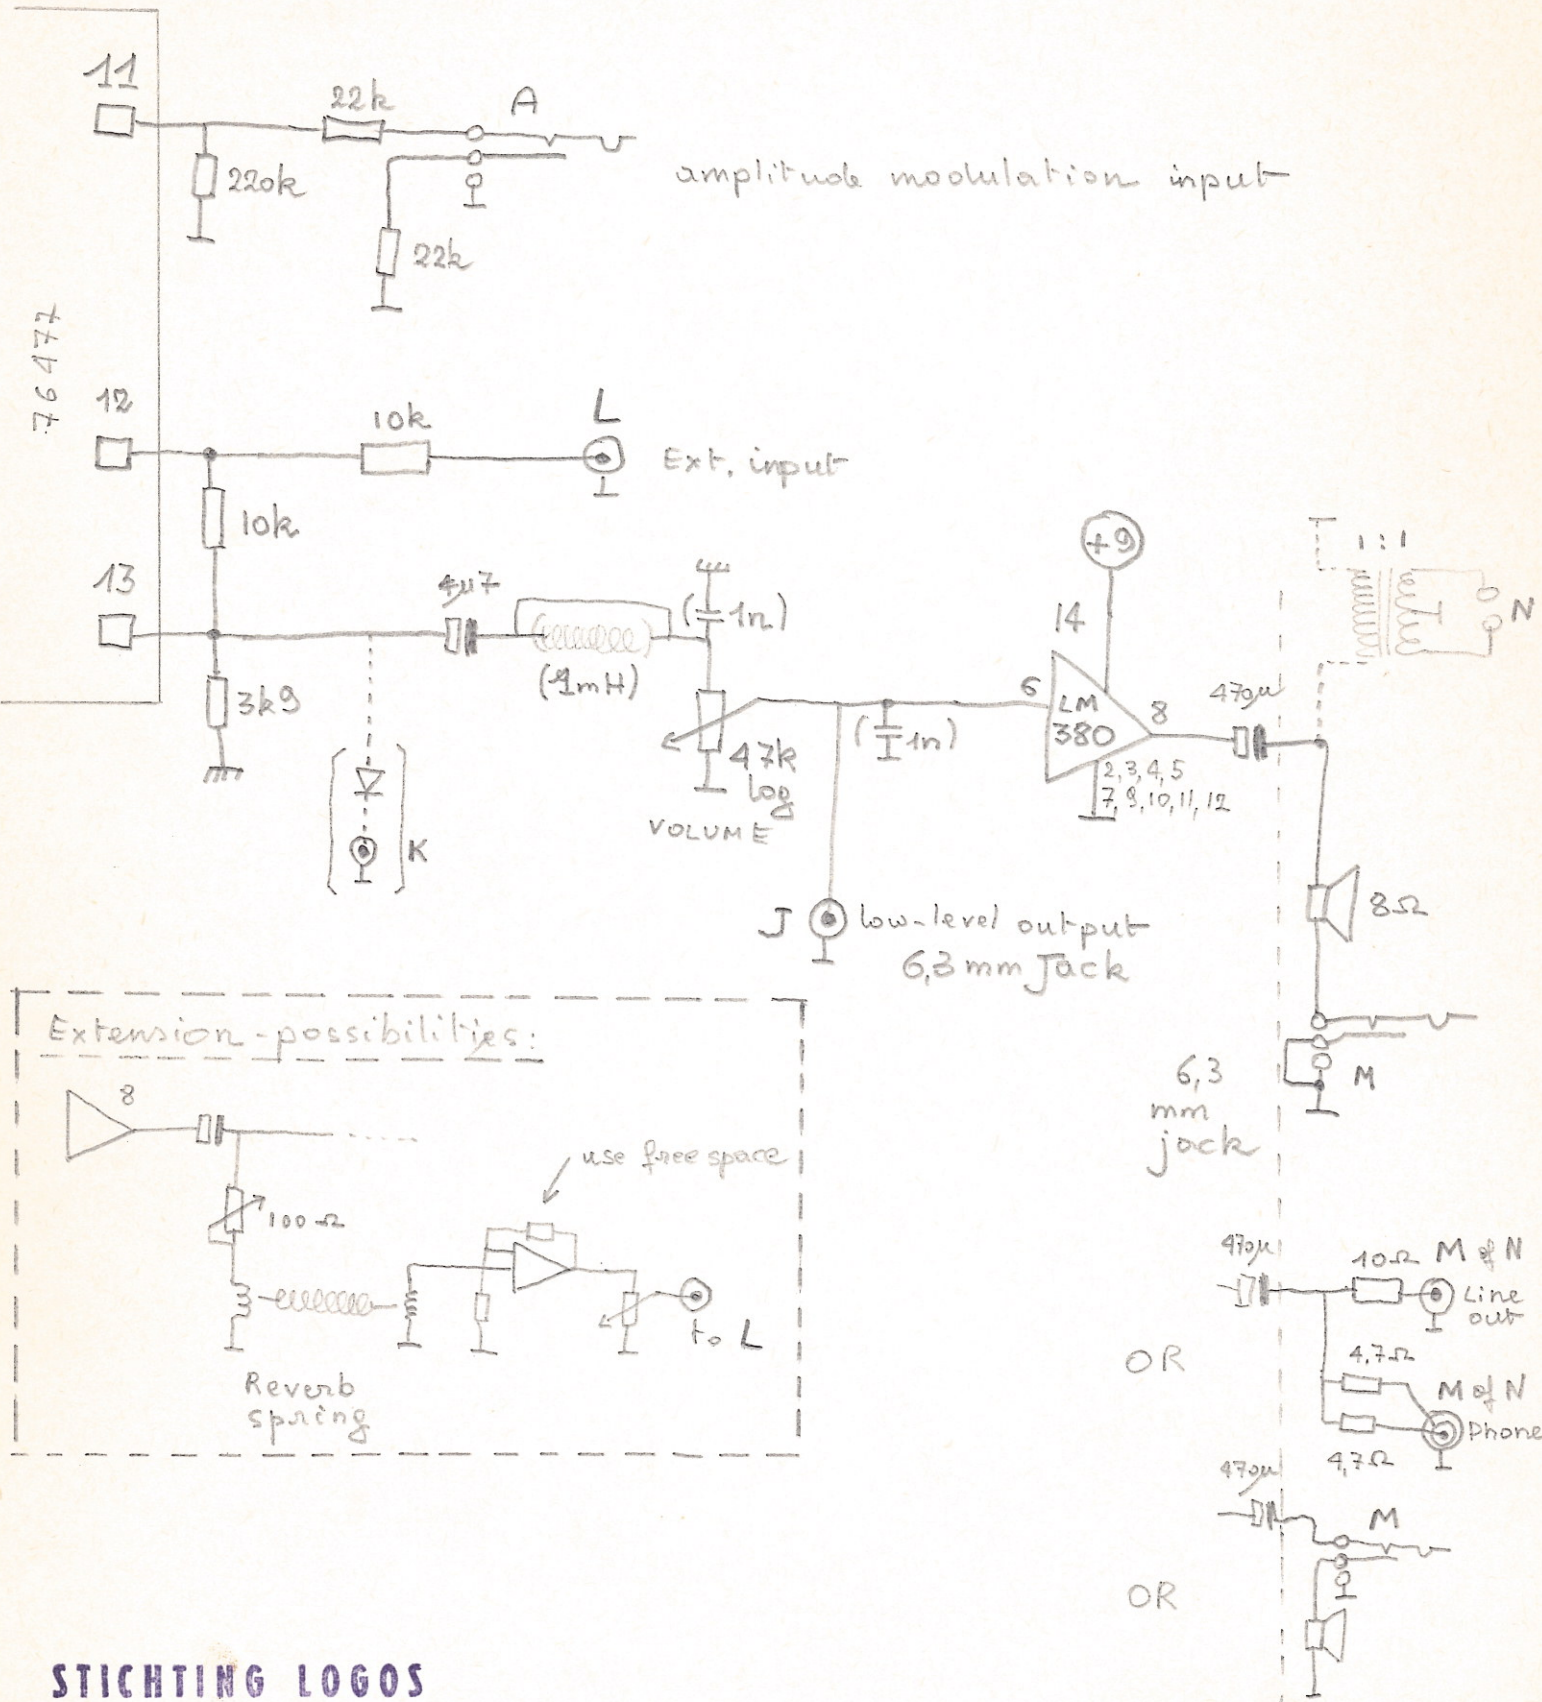 11
22k
A
220k
22k
amplitude modulation input
76477
12
10k
L
Ext. input
10k
13
4µ7
(1n)
(1mH)
3k9
47k
log
VOLUME
K
(1n)
+9
14
6
LM
380
8
2,3,4,5
7,9,10,11,12
470µ
1:1
N
8Ω
J
low-level output
6,3 mm Jack
6,3
mm
jack
M
Extension-possibilities:
8
100Ω
use free space
to L
Reverb
spring
470µ
10Ω
M of N
Line
out
OR
4,7Ω
M of N
Phone
4,7Ω
470µ
M
OR
STICHTING LOGOS